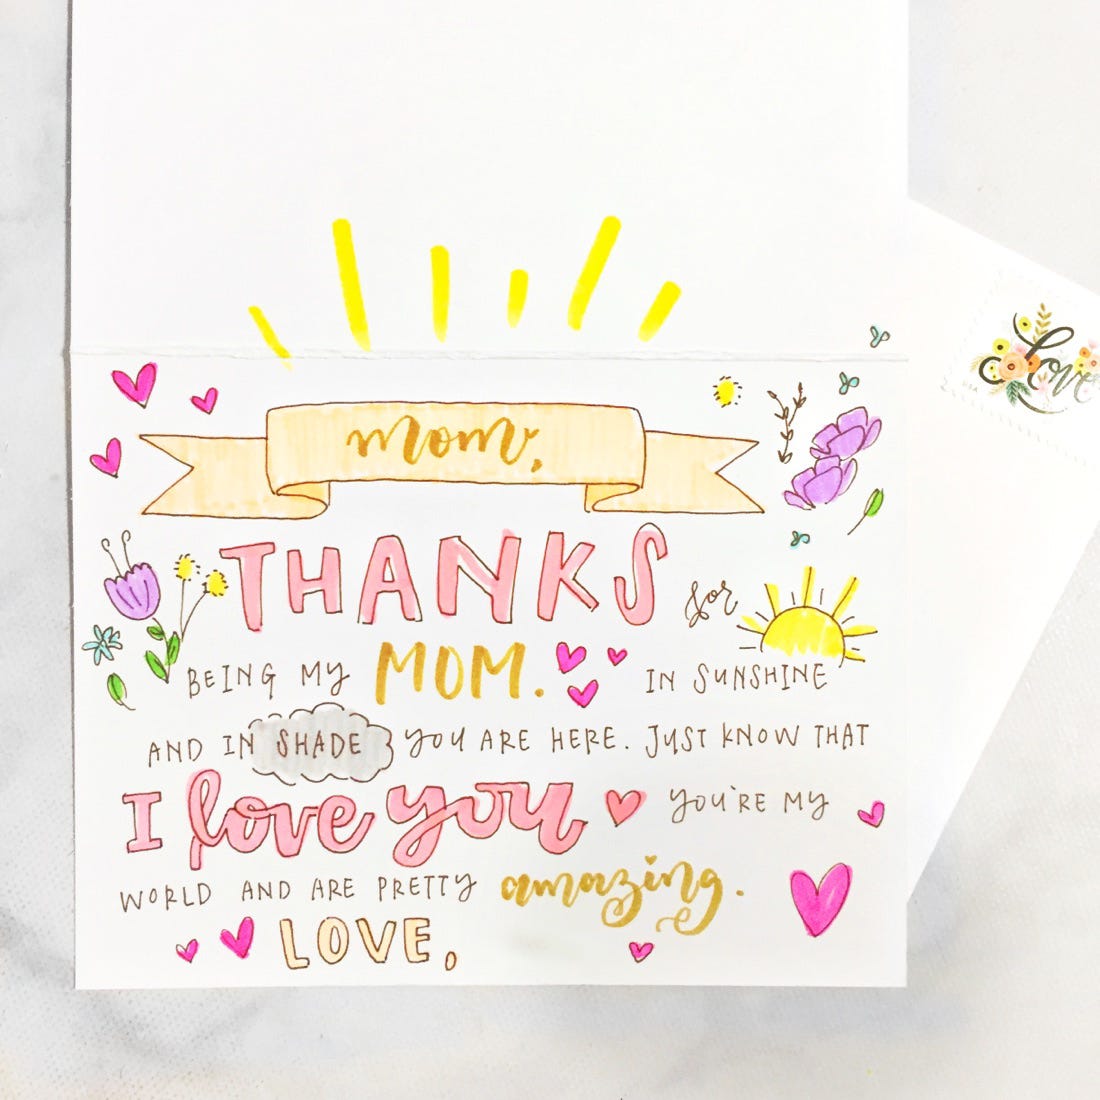 mom,
THANKS for
BEING MY MOM. IN SUNSHINE
AND IN SHADE YOU ARE HERE. JUST KNOW THAT
I love you YOU'RE MY
WORLD AND ARE PRETTY amazing.
LOVE,
Love
USA